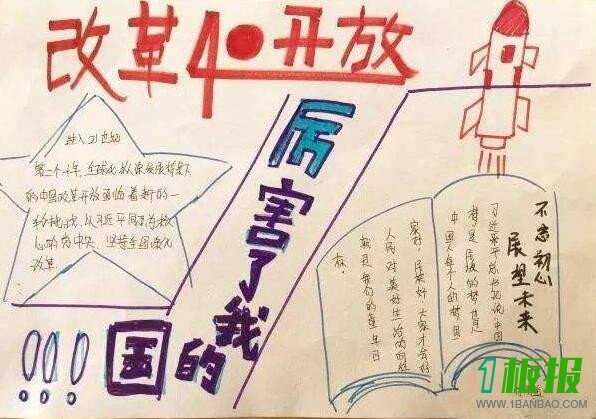 改革40开放
进入21世纪
第二个十年,全球化纵深发展背景下
的中国改革开放面临着新的一
种挑战,以习近平同志为核
心的党中央,坚持全面深化
改革
厉害了我的国!!!
不忘初心
展望未来
习近平总书记说中国
梦是民族的梦也是
中国人每个人的梦国
家好,民族好,大家才会好
人民对美好生活的向往
就是我们的奋斗目
标.
1板报
WWW.1BANBAO.COM